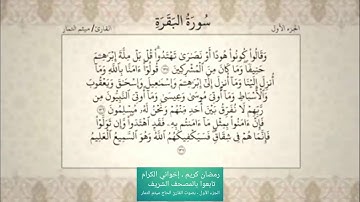 الجزء الأول
سُورَةُ البَقَرَةِ
القارئ/ ميثم التمار
وَقَالُوا۟ كُونُوا۟ هُودًا أَوْ نَصَـٰرَىٰ تَهْتَدُوا۟ ۗ قُلْ بَلْ مِلَّةَ إِبْرَٰهِـۧمَ
حَنِيفًا ۖ وَمَا كَانَ مِنَ ٱلْمُشْرِكِينَ ۝ قُولُوٓا۟ ءَامَنَّا بِٱللَّهِ وَمَآ
أُنزِلَ إِلَيْنَا وَمَآ أُنزِلَ إِلَىٰٓ إِبْرَٰهِـۧمَ وَإِسْمَـٰعِيلَ وَإِسْحَـٰقَ وَيَعْقُوبَ
وَٱلْأَسْبَاطِ وَمَآ أُوتِىَ مُوسَىٰ وَعِيسَىٰ وَمَآ أُوتِىَ ٱلنَّبِيُّونَ مِن
رَّبِّهِمْ لَا نُفَرِّقُ بَيْنَ أَحَدٍ مِّنْهُمْ وَنَحْنُ لَهُۥ مُسْلِمُونَ ۝
فَإِنْ ءَامَنُوا۟ بِمِثْلِ مَآ ءَامَنتُم بِهِۦ فَقَدِ ٱهْتَدَوا۟ ۖ وَّإِن تَوَلَّوْا۟
فَإِنَّمَا هُمْ فِى شِقَاقٍ ۖ فَسَيَكْفِيكَهُمُ ٱللَّهُ ۚ وَهُوَ ٱلسَّمِيعُ ٱلْعَلِيمُ
رمضان كريم ، إخواني الكرام
تابعوا بالمصحف الشريف
الجزء الأول ، بصوت القارئ الحاج ميثم التمار